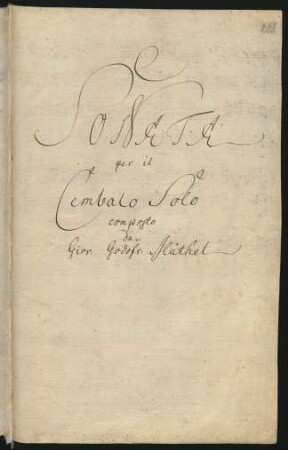 SONATA
per il
Cembalo Solo
composto
da
Giov. Godofr. Müthel